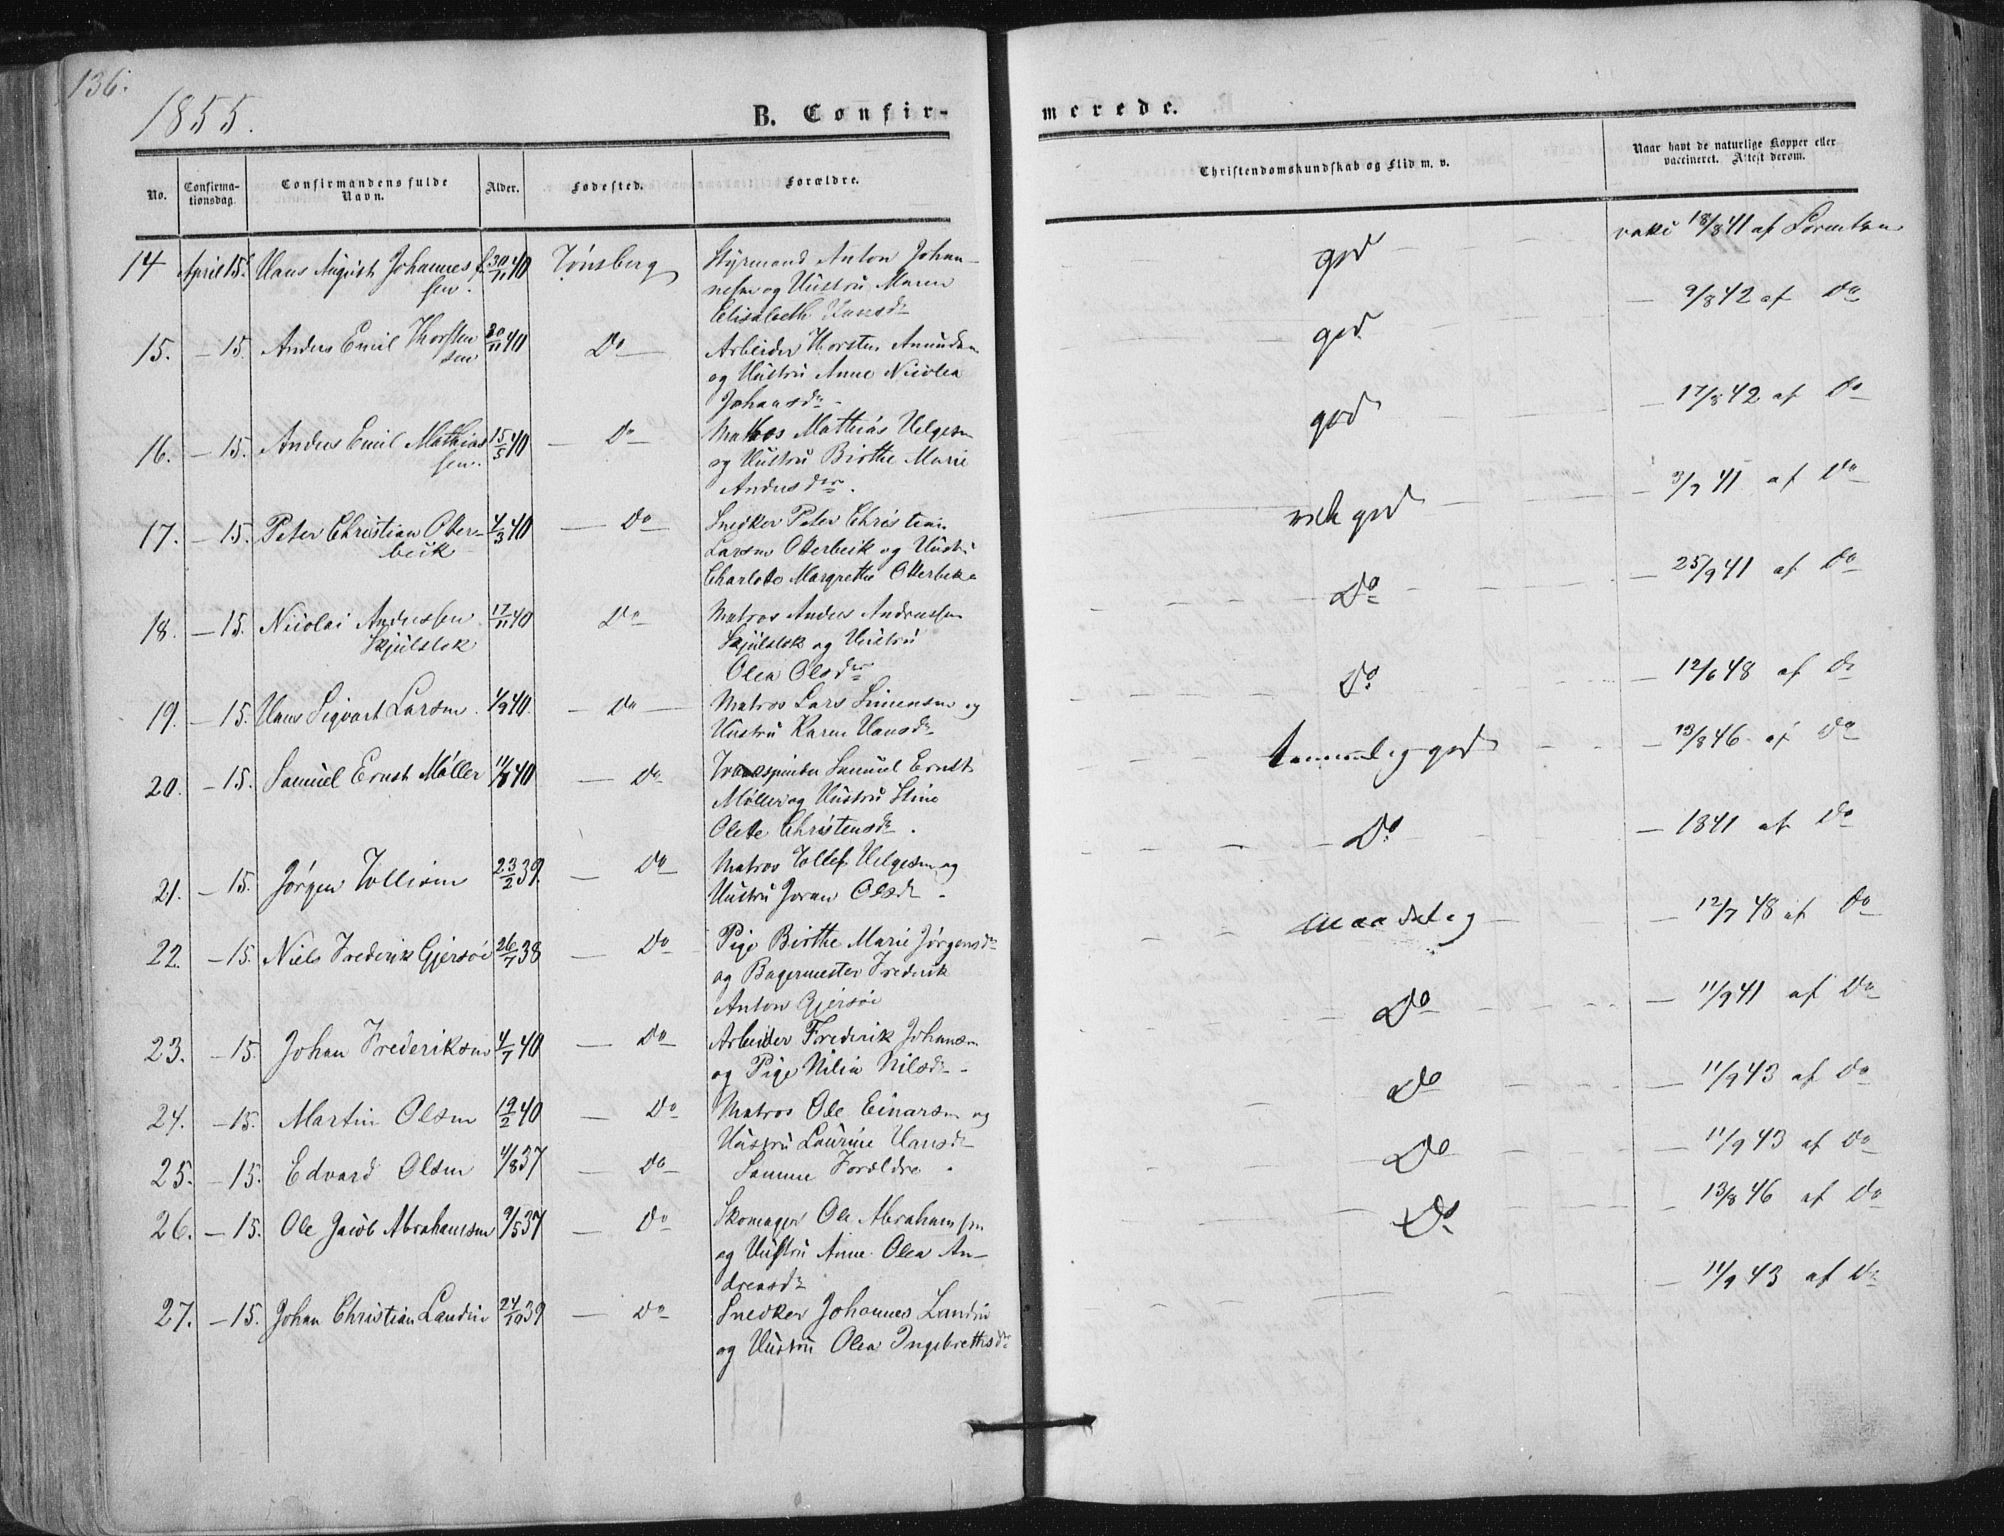 136.
1855.
B. Confir-
merede.
No.
Confirma-
tionsdag.
Confirmandens fulde
Navn.
Alder.
Fødested.
Forældre.
Christendomskundskab og Flid m. v.
Naar havt de naturlige Kopper eller
vaccineret. Attest derom.
14 April 15. Hans August Johannes- 30/11 40 Tønsberg Styrmand Anton Johan- god 18/8 41 af Lorentzen
sen. nesen og Hustru Maren
Elisabeth Hansdr
15. - 15. Anders Emil Thorsten 30/11 40 Do Arbeider Thorsten Amundsen god - 9/8 42 af Do
sen og Hustru Anne Nicolea
Johansdr
16. - 15. Anders Emil Mathias 15/5 40 - Do Matros Mathias Helgesen god - 17/8 42 af Do
sen. og Hustru Birthe Marie
Andersdr.
17. - 15. Peter Christian Otter- 4/3 40 - Do Snedker Peter Christian god - 3/7 41 af Do
beik Larsen Otterbeik og Hustru
Charlote Margrethe Otterbek
18. - 15. Nicolai Andersen 17/11 40 Do Matros Anders Andersen Do - 25/9 41 af Do
Skjülslok Skjülslok og Hustru
Olea Olsdr
19. - 15. Hans Sigvart Larsen 40. - Do - Matros Lars Simensen og Do - 12/6 48 af Do
Hustru Karen Hansdr
20. - 15. Samuel Ernst Møller 40 - Do Samuel Ernst temmelig god - 13/8 46 af Do
Møller og Hustru Stine
Olete Christensdr.
21. - 15. Jørgen Tollivsen 23/2 39. - Do Matros Tollef Helgesen og Do - 1841 af Do
Hustru Joran Olsdr
22. - 15. Niels Frederik Gjersøe 26/7 38 - Do Pige Birthe Marie Jørgensdr maadelig - 12/7 48 af Do
og Bagermester Frederik
Anton Gjersøe
23. - 15. Johan Frederiksen 4/7 40 - Do Arbeider Frederik Johansen Do - 11/9 41 af Do
og Pige Nilia Nilsdr
24. - 15. Martin Olsen 19/2 40 - Do Matros Ole Einarsen og Do - 11/9 43 af Do
Hustru Laurine Hansdr
25. - 15. Edvard Olsen 4/8 37 - Do Samme Forældre Do - 11/9 43 af Do
26. - 15. Ole Jacob Abrahamsen 9/5 37 - Do Skomager Ole Abrahamsen Do - 13/8 46 af Do
og Hustru Anne Olea An-
dreasdr
27. - 15. Johan Christian Landin 24/10 39 - Do Snedker Johannes Landin - 11/9 43 af Do
og Hustru Olea Ingebrethsdr